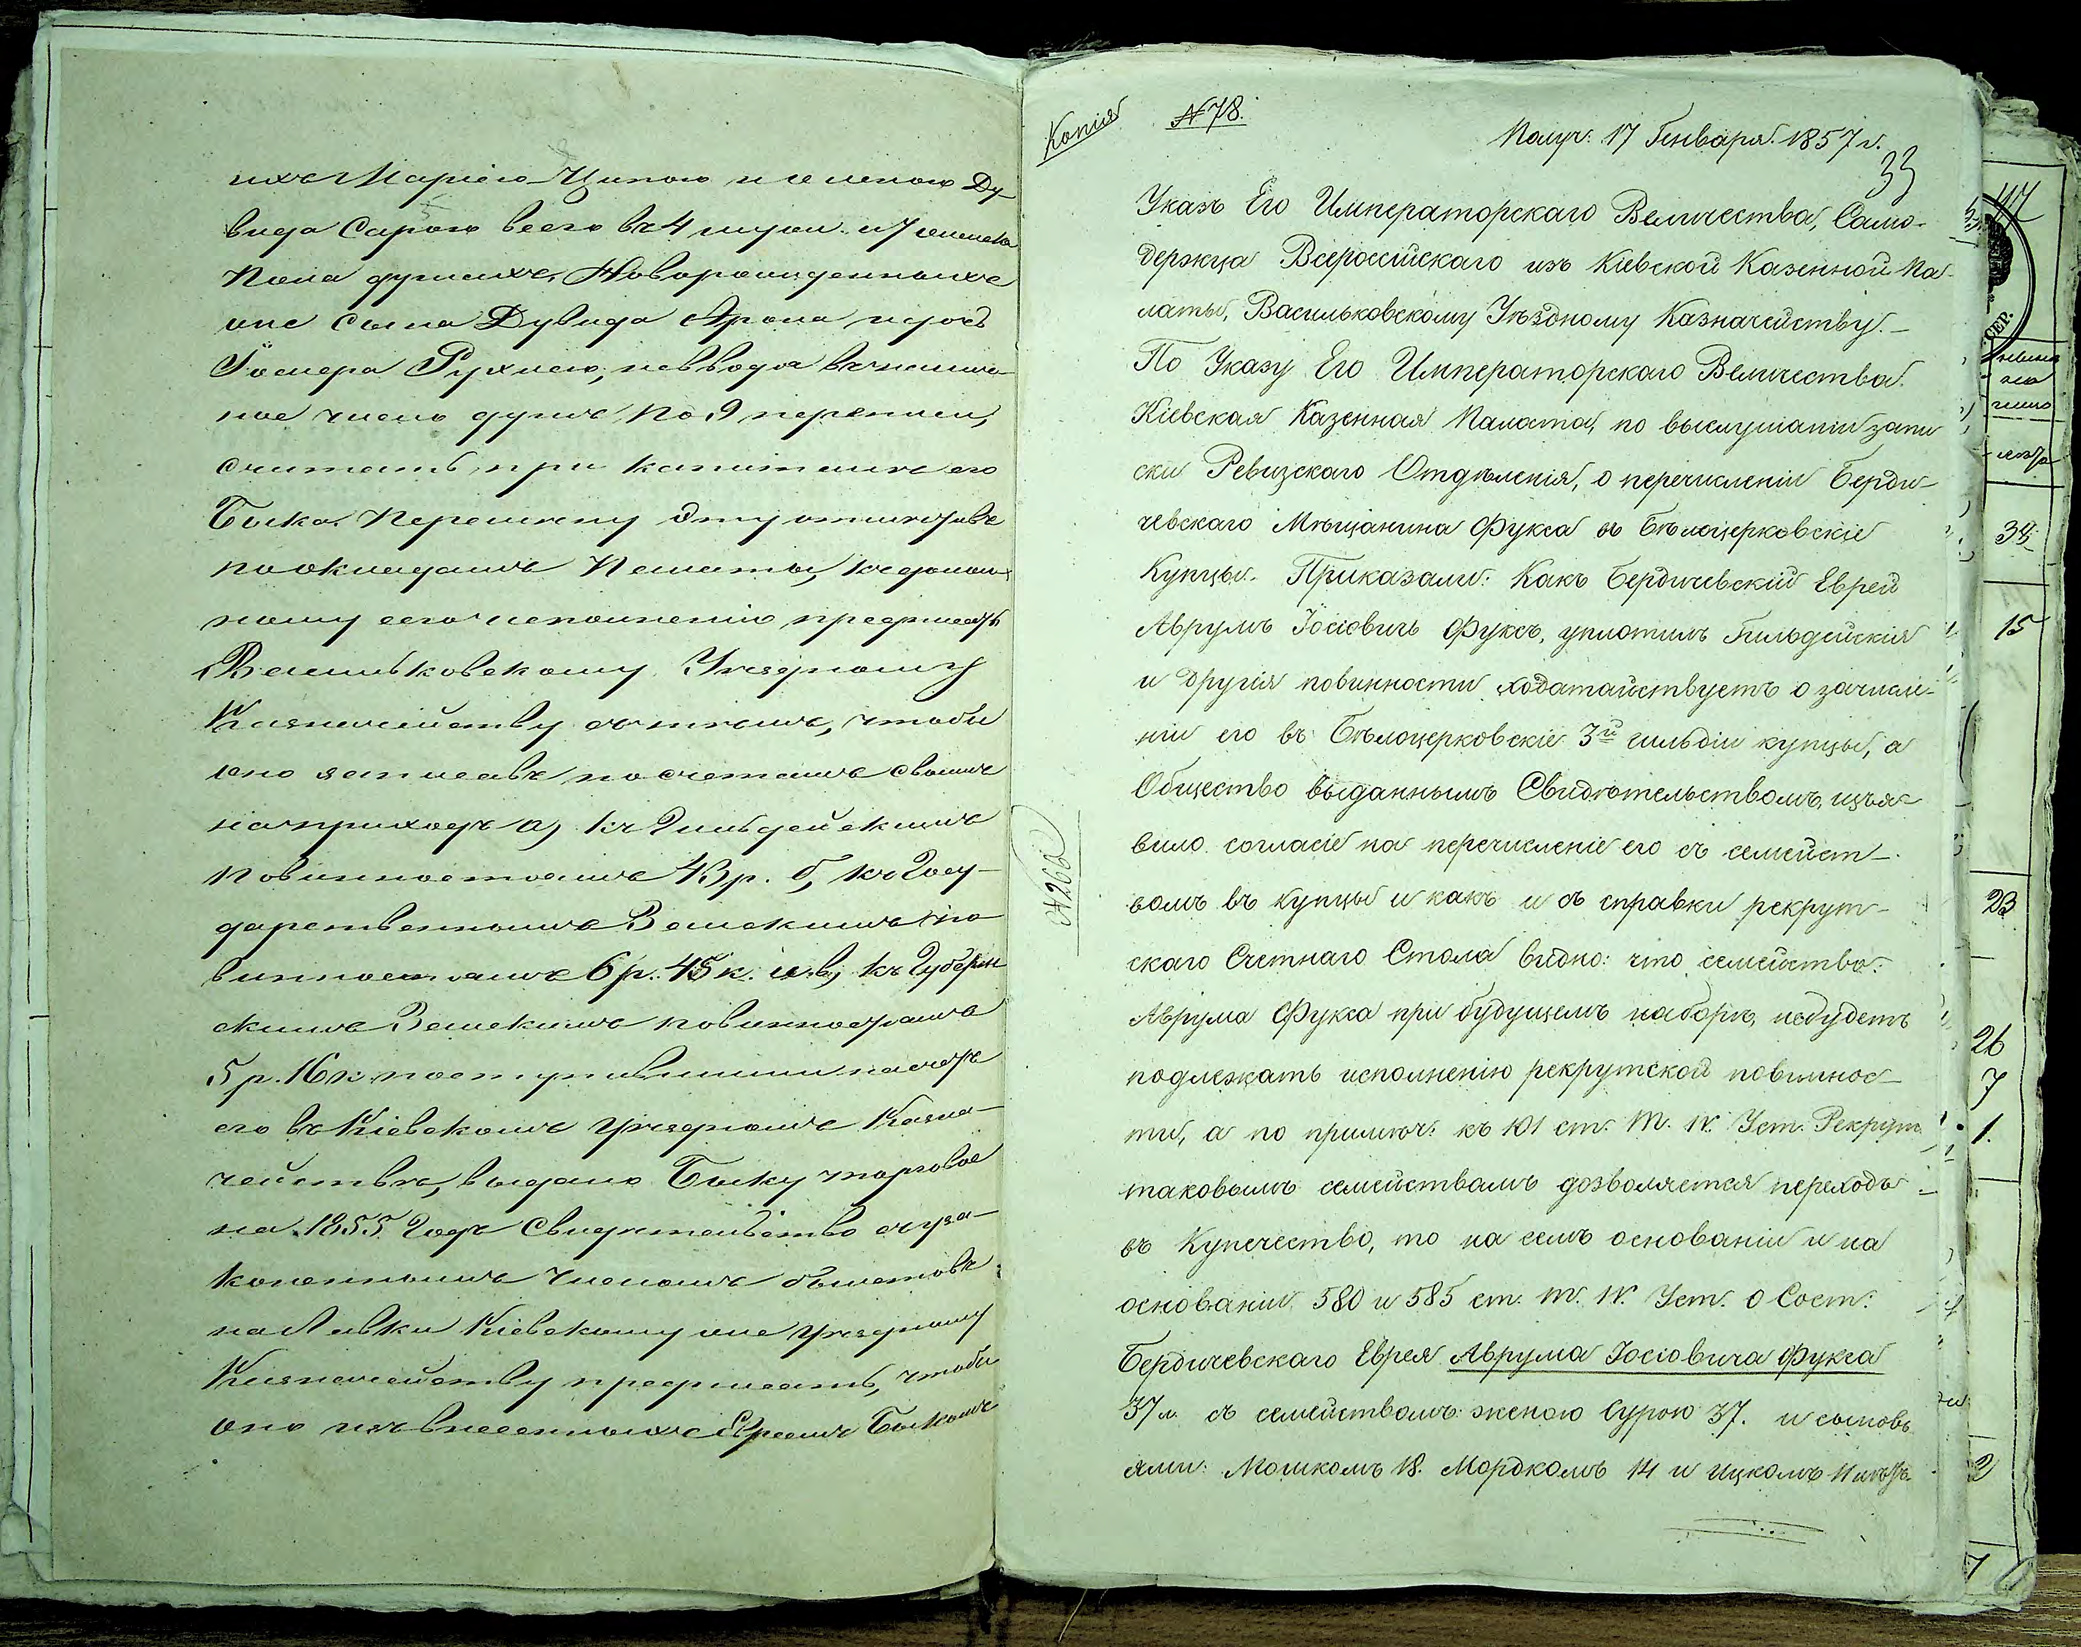 ихъ Маріею Ципою и женою Ду-
вида Сарою всего въ 4 муж. и 7 женска
пола душахъ, Новорожденныхъ
же сына Дувида Арона и дочь
Іосифа Рухлею, невводя въ
ное число душъ по 9 переписи,
считать при капиталѣ его
Быка. Перемѣну эту отмѣтивъ
по окладамъ Палаты, къ долж-
ному сего исполненію предписать
Васильковскому Уѣздному
Казначейству съ тѣмъ, чтобы
оно записавъ по счетамъ своимъ
на приходъ а, къ Гильдейскимъ
повинностямъ 43 р. б, къ Госу-
дарственнымъ Земскимъ по-
винностямъ 6 р. 45 к. и в, къ Губерн
скимъ Земскимъ повинностямъ
5 р. 16 к. поступившими на счетъ
его въ Кіевскомъ Уѣздномъ Казна-
чействѣ, выдало Быку торговое
на 1855 Годъ Свидѣтельство съ уза-
коненнымъ числомъ билетовъ
на Лавки Кіевскому же Уѣздному
Казначейству предписать, чтобы
оно изъ внесенныхъ Евреемъ Быкомъ
Копія
№ 78.
Получ. 17 Генваря 1857 г.
33
Указъ Его Императорскаго Величества, Само-
держца Всероссійскаго изъ Кіевской Казенной Па-
латы, Васильковскому Уѣздному Казначейству.-
По Указу Его Императорскаго Величества
Кіевская Казенная Палата, по выслушаніи запи
ски Ревизскаго Отдѣленія, о перечисленіи Берди-
чевскаго Мѣщанина Фукса въ Бѣлоцерковскіе
Купцы. Приказали: Какъ Бердичевскій Еврей
Аврумъ Іосіовичъ Фуксъ, уплотилъ Гильдейскія
и другія повинности ходатайствуетъ о зачисле-
ніи его въ Бѣлоцерковскіе 3й гильдіи купцы, а
Общество выданнымъ Свидѣтельствомъ изъя-
вило согласіе на перечисленіе его съ семейст-
вомъ въ купцы и какъ и съ справки рекрут-
скаго Счетнаго Стола видно: что семейство
Аврума Фукса при будущемъ наборѣ, небудетъ
подлежать исполненію рекрутской повиннос-
ти, а по примѣч: къ 101 ст. Т. IV. Уст. Рекрут
таковымъ семействамъ дозволяется переходъ
въ Купечество, то на семъ основаніи и на
основаніи 580 и 585 ст. Т. IV. Уст. о Сост:
Бердичевскаго Еврея Аврума Іосіовича Фукса
37 л. съ семействомъ: женою Сурою 37. и сыновь
ями: Мошкомъ 18. Мордкомъ 14 и Ицкомъ 11 лѣтъ
38
15
23
26
7
1.
2
7